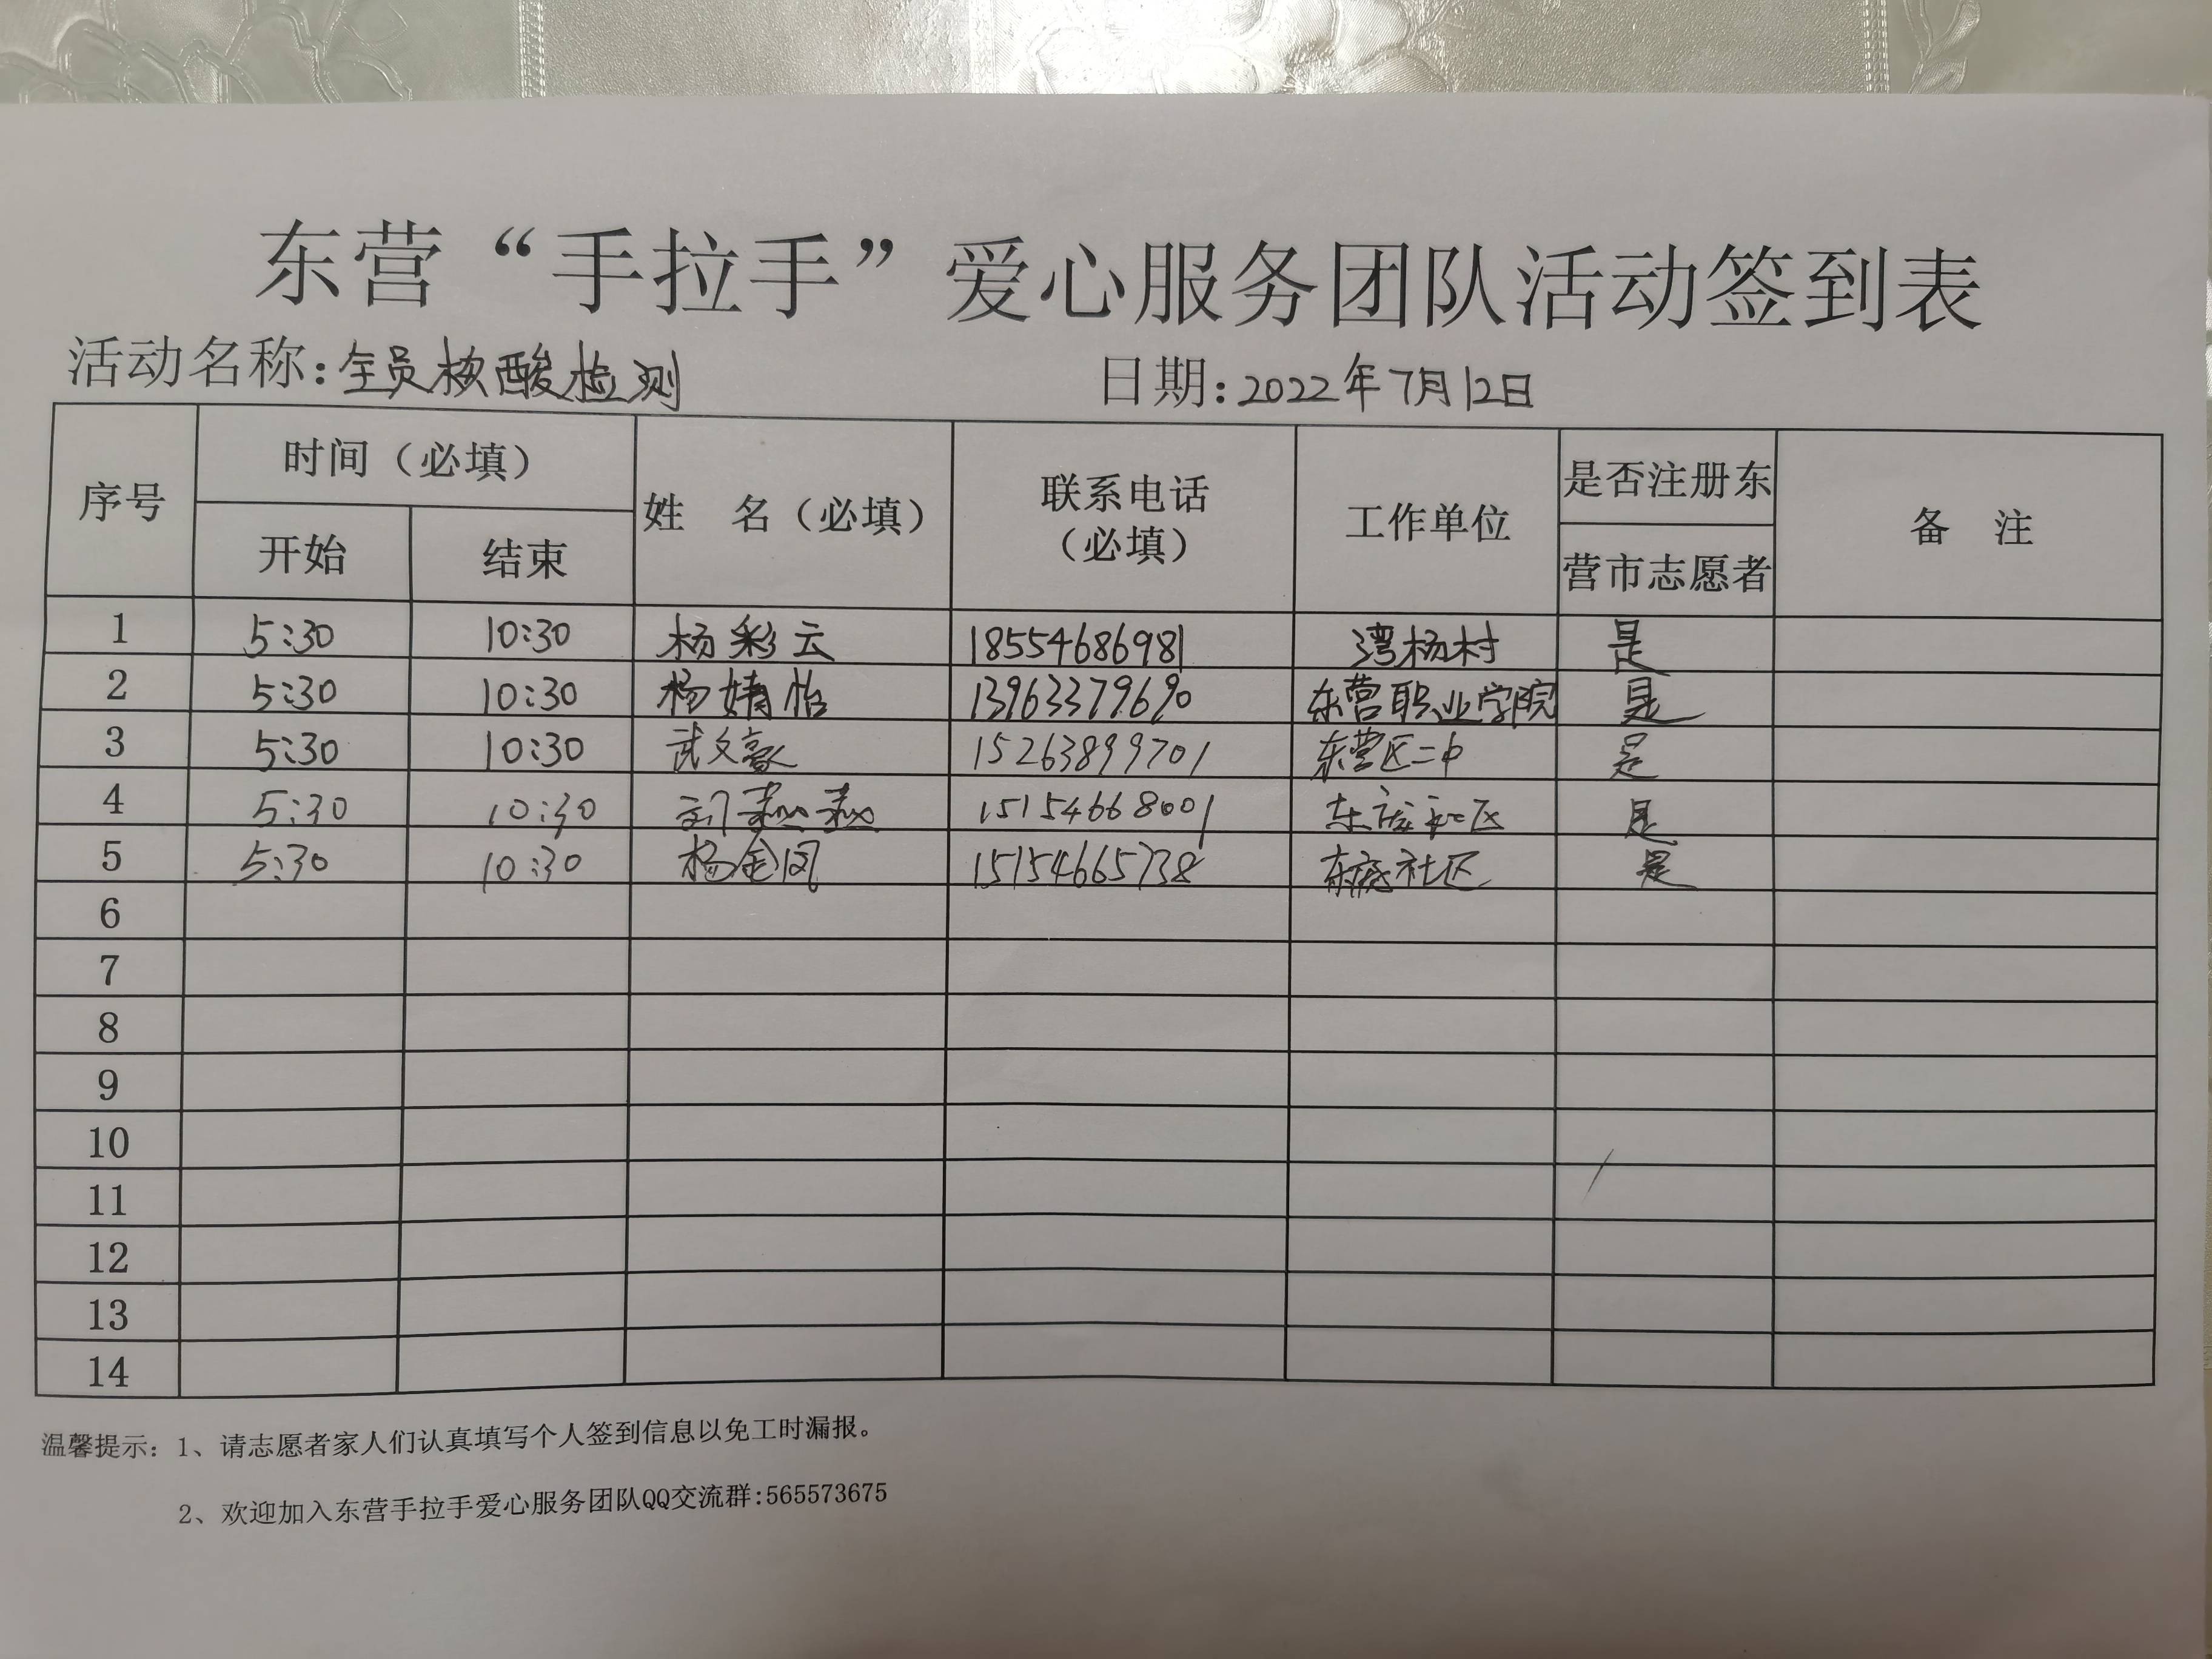 东营“手拉手”爱心服务团队活动签到表
活动名称:全员核酸检测 日期:2022年7月12日
序号 时间（必填） 姓 名（必填） 联系电话（必填） 工作单位 是否注册东营市志愿者 备 注
开始 结束
1 5:30 10:30 杨彩云 18554686981 湾杨村 是
2 5:30 10:30 杨婧怡 13963379690 东营职业学院 是
3 5:30 10:30 武文豪 15263899701 东营区二中 是
4 5:30 10:30 刘 15154668001 社区 是
5 5:30 10:30 杨金凤 15154665738 社区 是
6
7
8
9
10
11
12
13
14
温馨提示: 1、请志愿者家人们认真填写个人签到信息以免工时漏报。
2、欢迎加入东营手拉手爱心服务团队QQ交流群:565573675